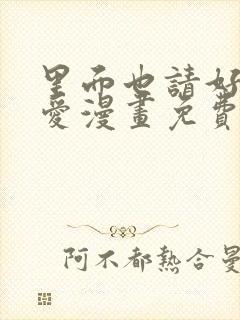 里而也請好
愛漫畫免費
阿不都熱合曼